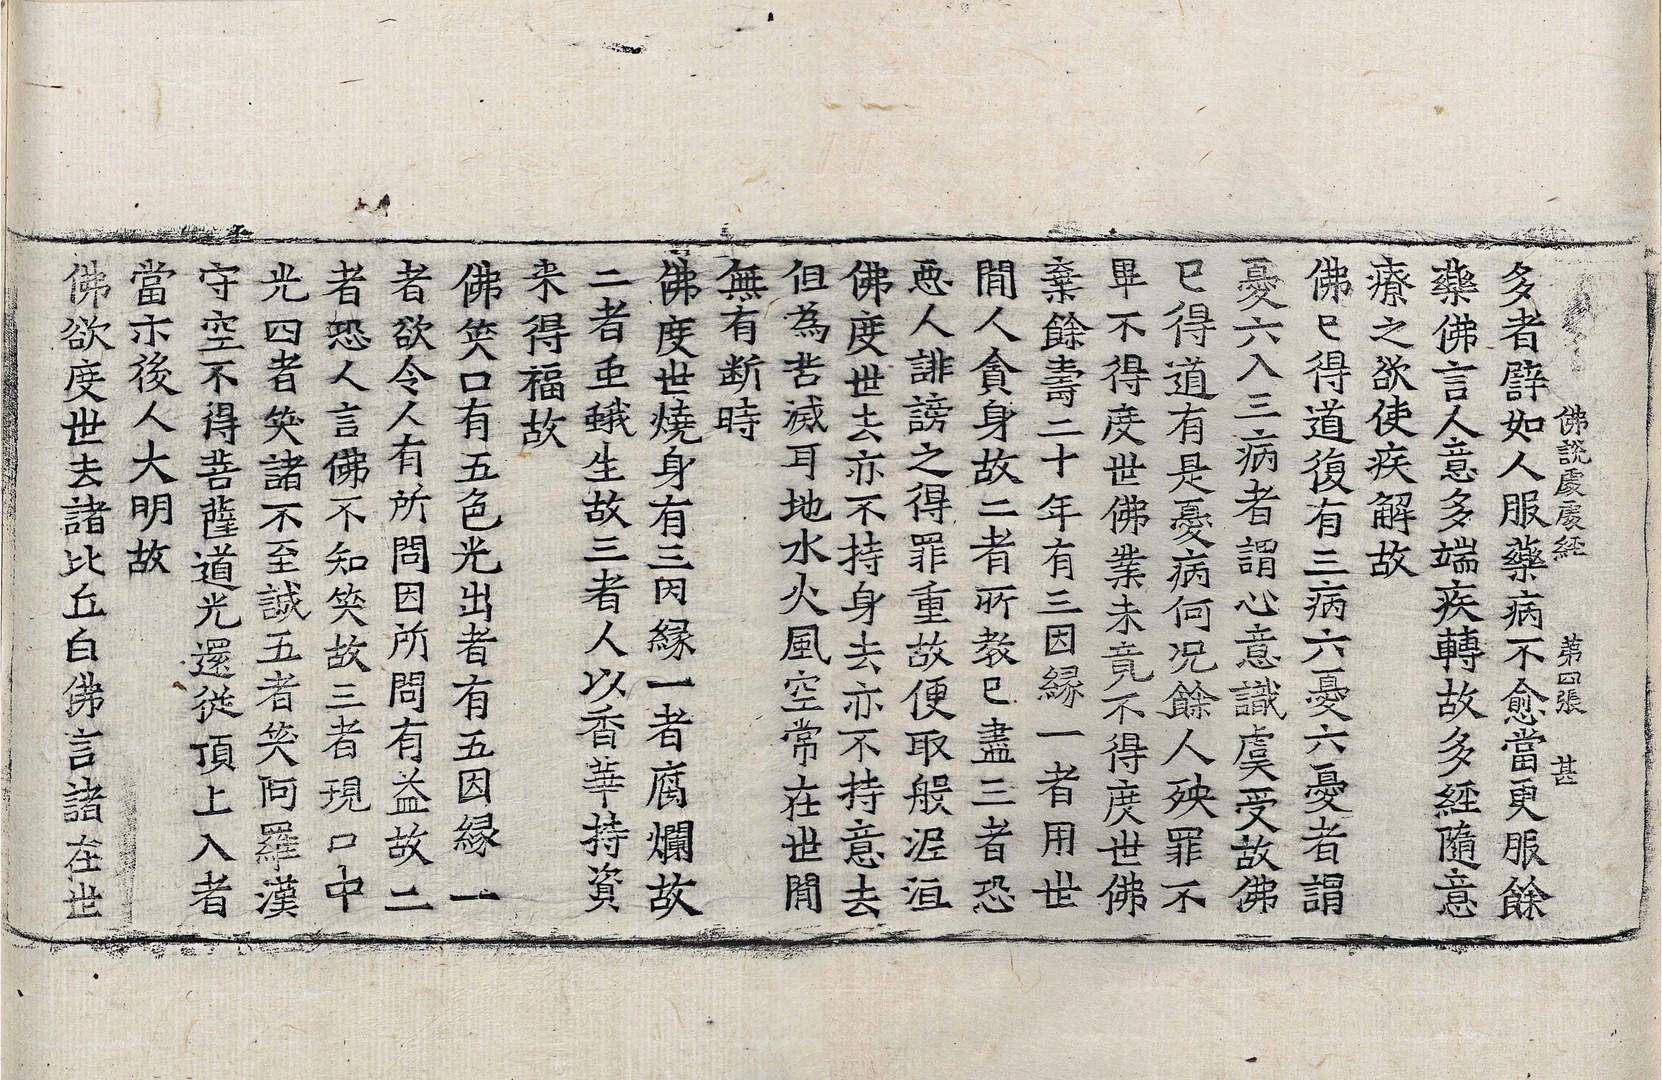 佛說處處経　第四張　甚
多者譬如人服藥病不愈當更服餘
藥佛言人意多端疾轉故多經隨意
療之欲使疾解故
佛已得道復有三病六憂六憂者謂
憂六入三病者謂心意識虞受故佛
已得道有是憂病何况餘人殃罪不
畢不得度世佛業未竟不得度世佛
棄餘壽二十年有三因緣一者用世
間人貪身故二者所教已盡三者恐
惡人誹謗之得罪重故便取般泥洹
佛度世去亦不持身去亦不持意去
但為苦滅耳地水火風空常在世間
無有断時
佛度世燒身有三因緣一者腐爛故
二者重蛾生故三者人以香華持資
来得福故
佛笑口有五色光出者有五因緣一
者欲令人有所問因所問有益故二
者恐人言佛不知笑故三者現口中
光四者笑諸不至誠五者笑阿羅漢
守空不得菩薩道光還従頂上入者
當示後人大明故
佛欲度世去諸比丘白佛言諸在世